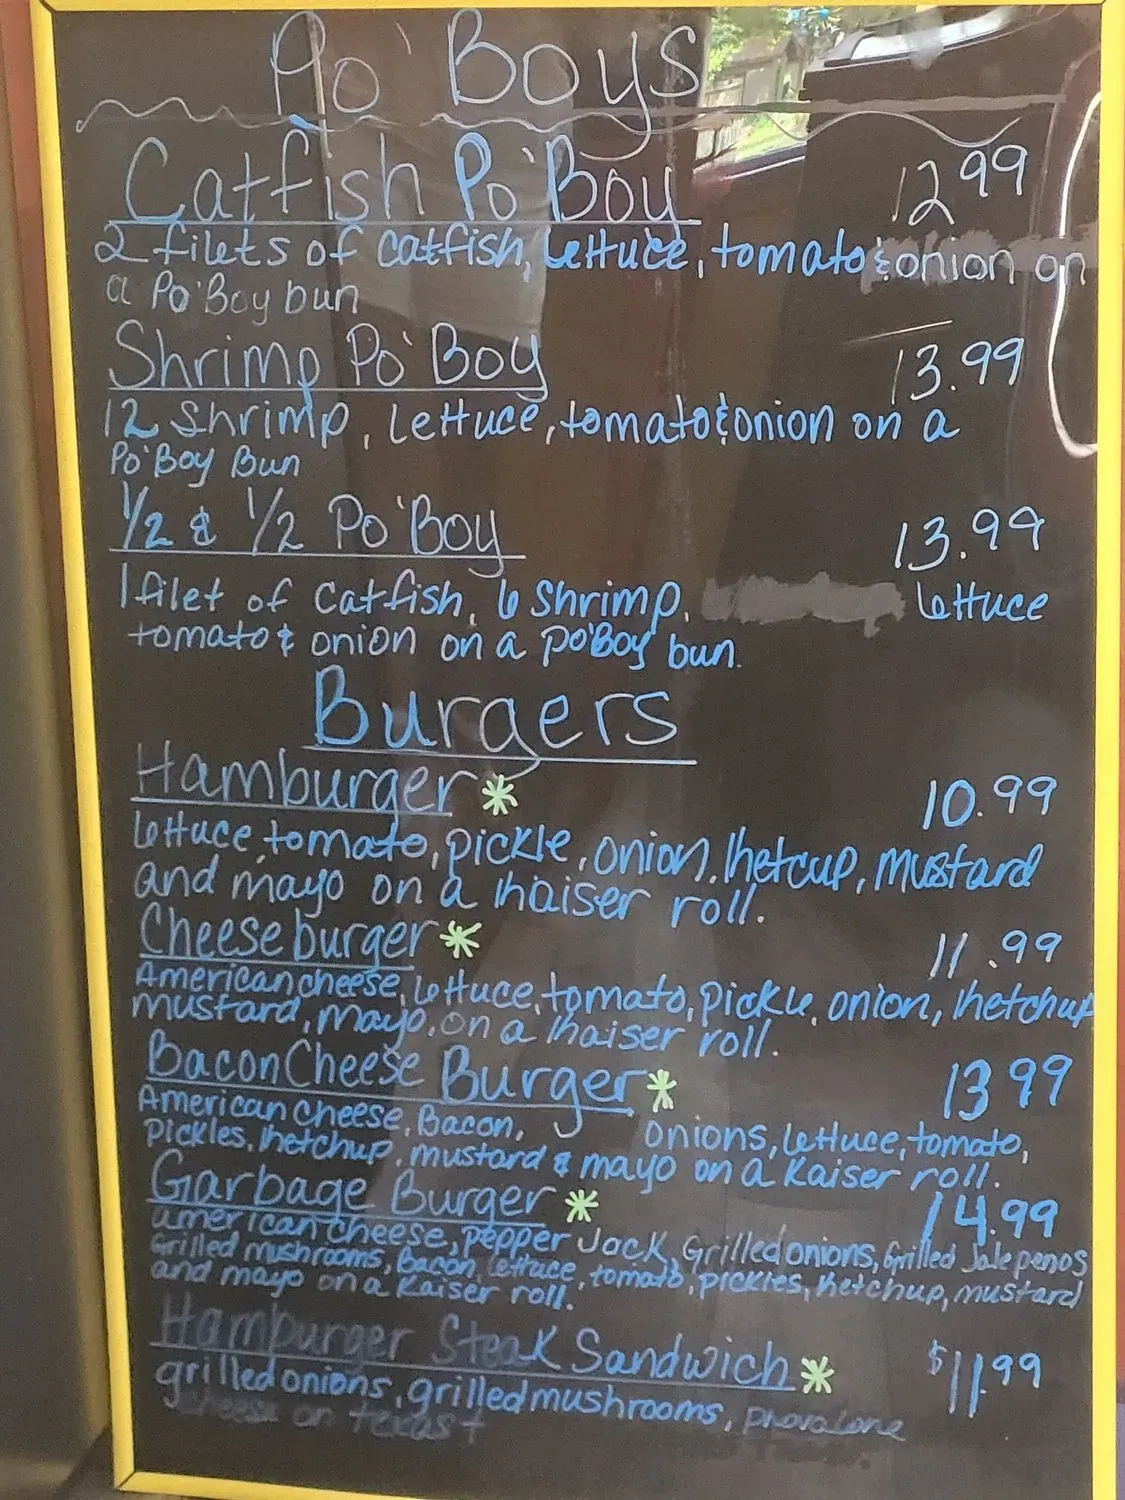 Po' Boys
Catfish Po'Boy 12 99
2 filets of catfish, lettuce, tomato & onion on
a Po'Boy bun
Shrimp Po'Boy 13.99
12 shrimp, lettuce, tomato & onion on a
Po'Boy Bun
1/2 & 1/2 Po'Boy 13.99
1 filet of catfish, 6 shrimp, lettuce
tomato & onion on a po'Boy bun.
Burgers
Hamburger * 10.99
lettuce, tomato, pickle, onion, ketcup, mustard
and mayo on a kaiser roll.
Cheeseburger * 11.99
American cheese, lettuce, tomato, pickle, onion, ketchup
mustard, mayo, on a kaiser roll.
Bacon Cheese Burger * 13 99
American cheese, Bacon, onions, lettuce, tomato,
pickles, ketchup, mustard & mayo on a Kaiser roll.
Garbage Burger * 14.99
american cheese, pepper Jack, Grilled onions, Grilled Jalepenos
Grilled mushrooms, Bacon, lettuce, tomato, pickles, ketchup, mustard
and mayo on a Kaiser roll.
Hamburger Steak Sandwich * $11.99
grilled onions, grilled mushrooms, provalone
cheese on texas t